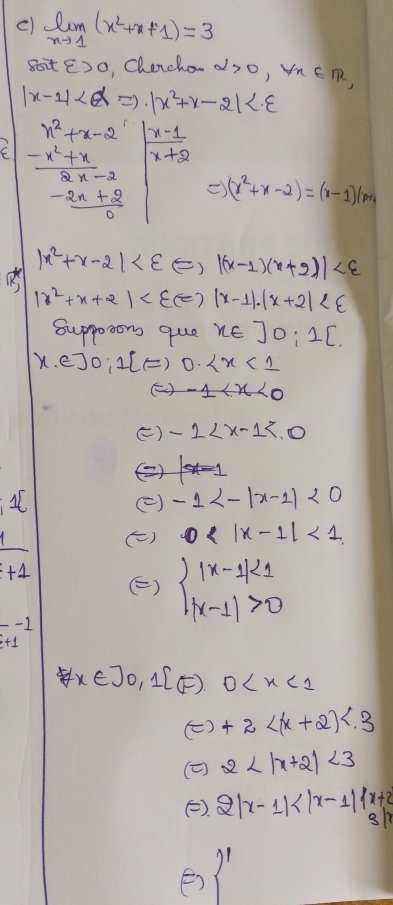 c) lim (x²+x+1)=3
x→1
Soit ε>0, Cherchons α>0, ∀x ∈ ℝ,
|x-1|<α ⇒ |x²+x-2|<ε
x²+x-2 | x-1
-x²+x | x+2
2x-2
-2x+2
0
⇒(x²+x-2)=(x-1)(x+
|x²+x-2|<ε ⇔ |(x-1)(x+2)|<ε
|x²+x+2|<ε ⇔ |x-1|.|x+2|<ε
Supposons que x∈ ]0;1[.
x∈]0;1[ ⇔ 0<x<1
⇔ -1<x<0
⇔ -1<x-1<0
⇔ |x-1
⇔ -1<-|x-1|<0
⇔ 0<|x-1|<1
⇔ { |x-1|<1
|x-1|>0
∀x∈]0,1[ ⇔ 0<x<1
⇔ +2<(x+2)<3
⇔ 2<|x+2|<3
⇔ 2|x-1|<|x-1||x+2
3|x
⇔ {
;1[
1
+1
-1
+1